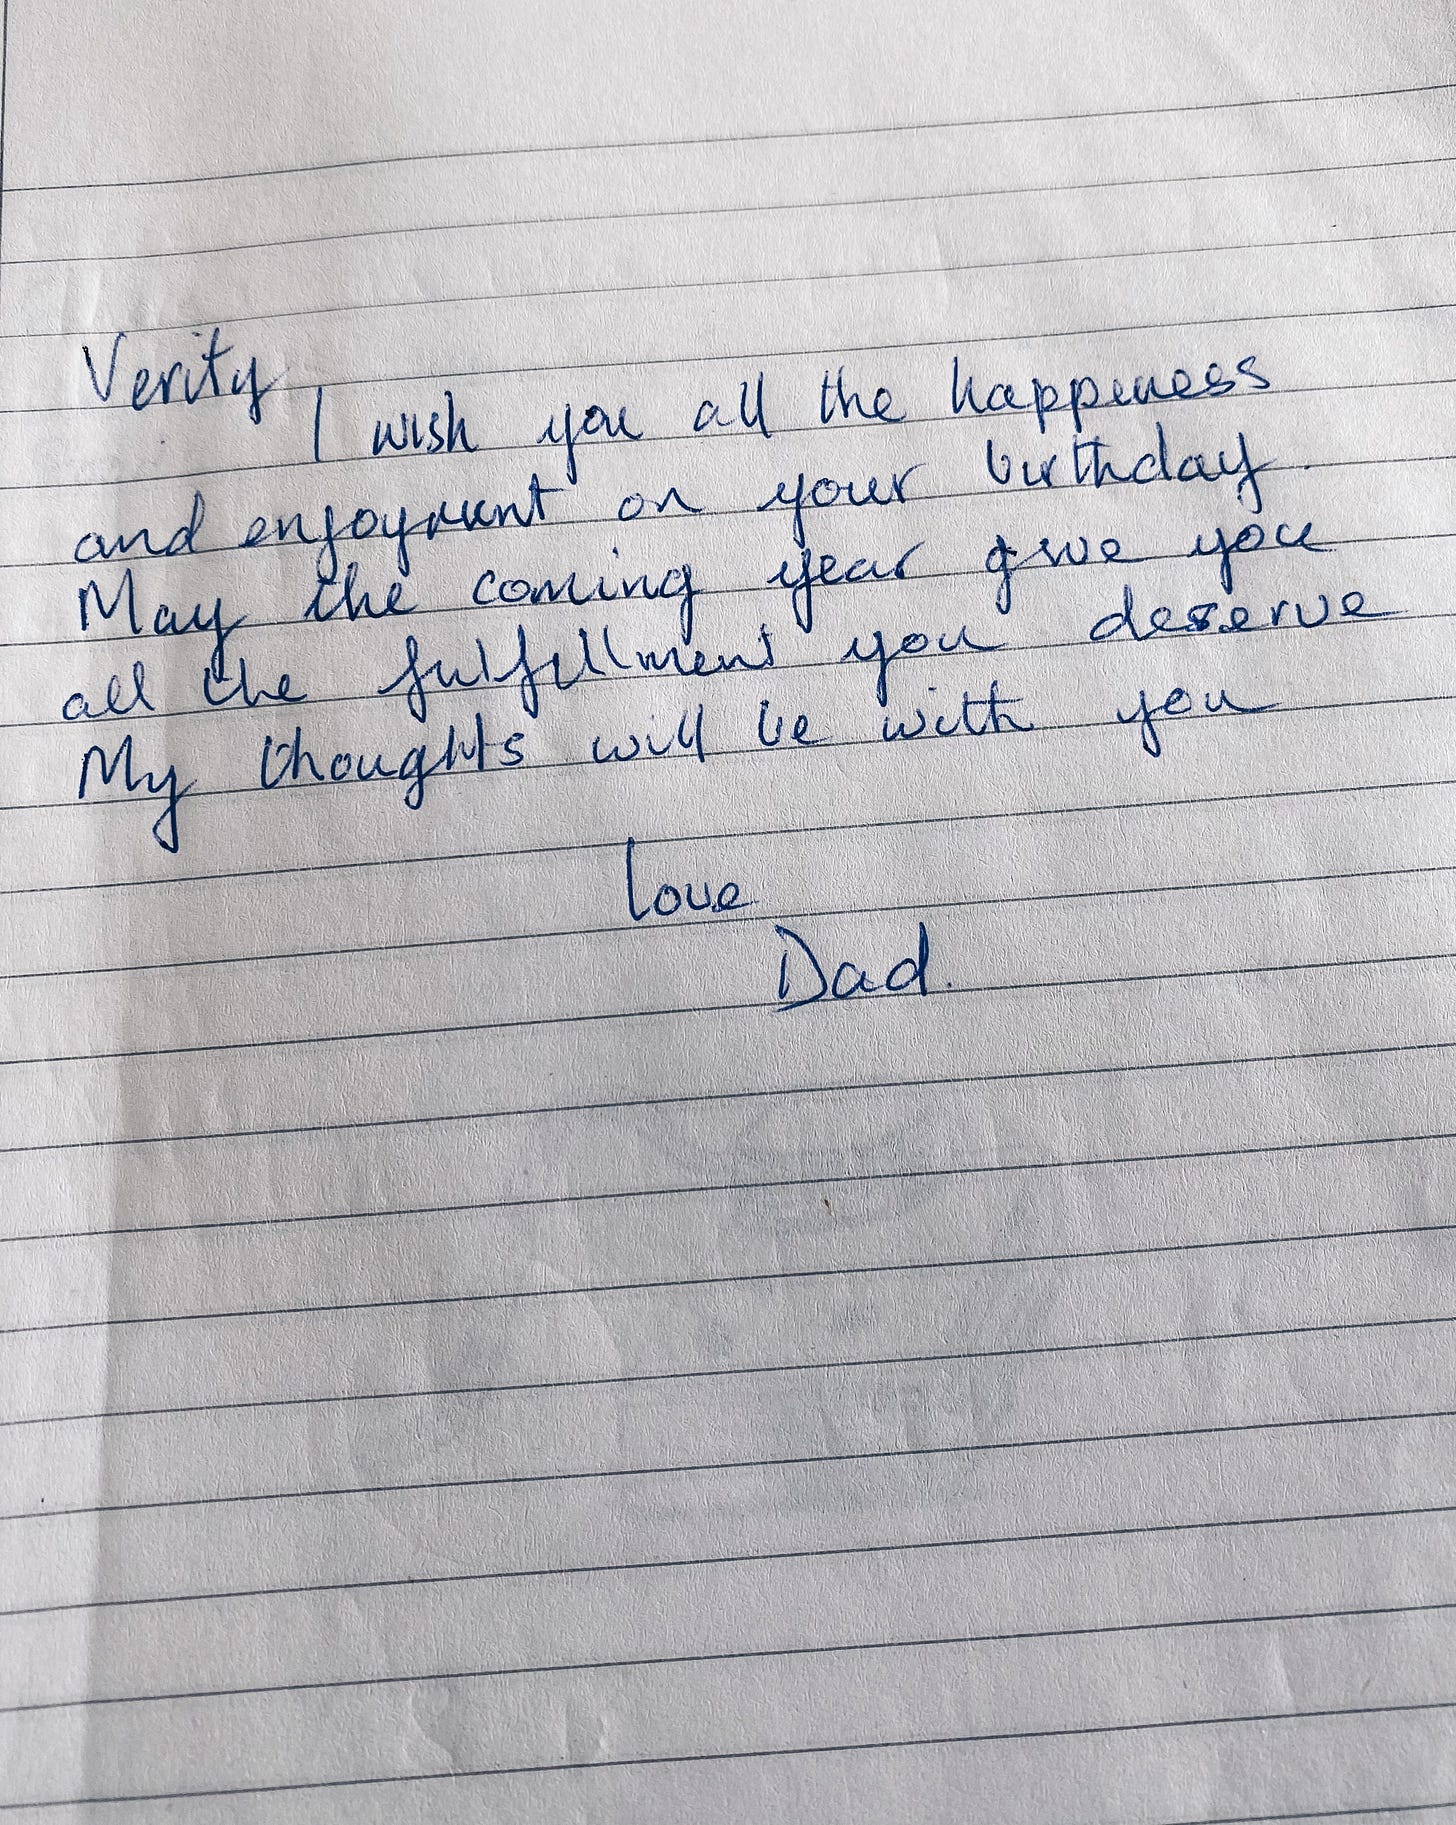 Verity
I wish you all the happiness
and enjoyment on your birthday.
May the coming year give you
all the fulfillment you deserve
My thoughts will be with you
love
Dad.